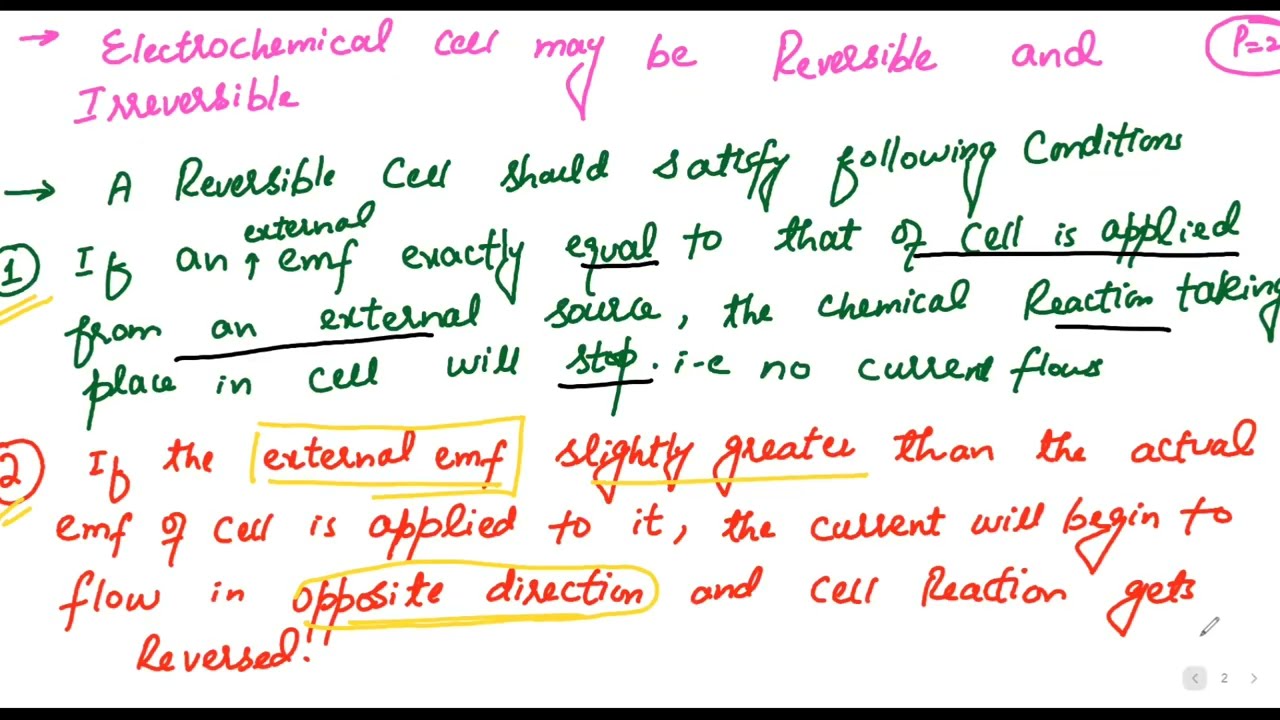 → Electrochemical cell may be Reversible and P=2
Irreversible
→ A Reversible Cell should satisfy following Conditions
external
1 If an ↑ emf exactly equal to that of cell is applied
from an external source, the chemical Reaction taking
place in cell will stop. i-e no current flows
2 If the external emf slightly greater than the actual
emf of cell is applied to it, the current will begin to
flow in opposite direction and cell Reaction gets
Reversed!
2